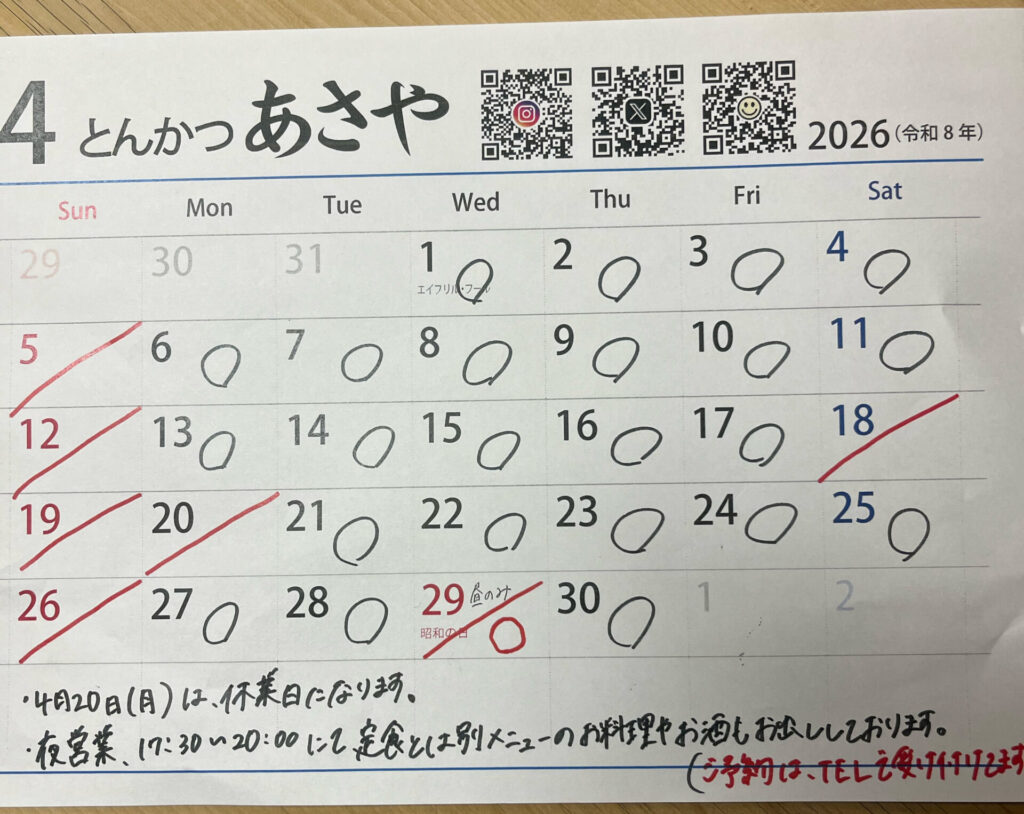 4 とんかつ あさや 2026(令和8年)
Sun Mon Tue Wed Thu Fri Sat
29 30 31 1 2 3 4
エイプリル・フール
5 6 7 8 9 10 11
12 13 14 15 16 17 18
19 20 21 22 23 24 25
26 27 28 29 昼のみ 30 1 2
昭和の日
・4月20日(月)は、休業日になります。
・夜営業、17:30〜20:00にて定食とは別メニューのお料理やお酒もお出ししております。
(ご予約は、TELで受け付けてます